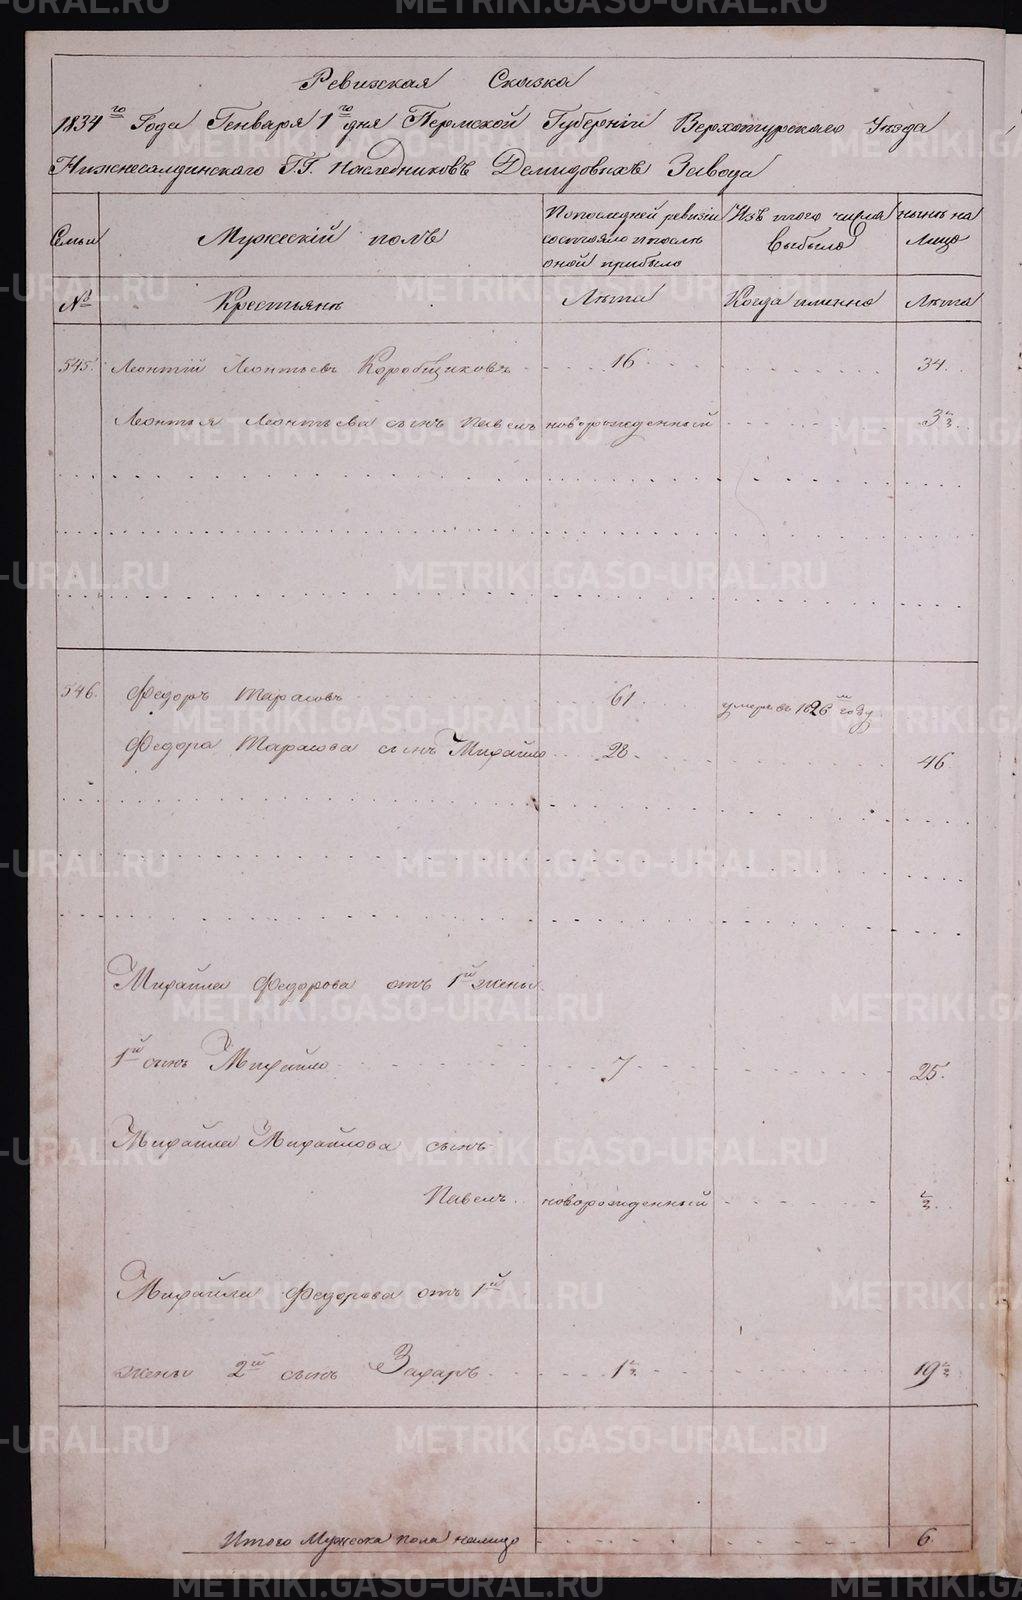 Ревизская Сказка
1834го Года Генваря 1го дня Пермской Губернiи Верхотурскаго Уѣзда
Нижнесалдинскаго Г.Г. Наследниковъ Демидовыхъ Завода
Семьи
Мужескiй полъ
По последней ревизiи состояло и послѣ оной прибыло
Изъ того числа выбыло
ныне на Лицо
№
Крестьянъ
Лѣта
Когда именно
Лѣта
545. Леонтiй Леонтьевъ Коробщиковъ 16 34.
Леонтья Леонтьева сынъ Павелъ новорожденный 3½
546. Федоръ Тарасовъ 61 умеръ въ 1826м году
Федора Тарасова сынъ Михайло 28 46.
Михайла Федорова отъ 1й жены
1й сынъ Михайло 7 25.
Михайла Михайлова сынъ
Павелъ новорожденный ½
Михайла Федорова отъ 1й
жены 2й сынъ Захаръ 1½ 19½
Итого Мужеска пола налицо 6.
METRIKI.GASO-URAL.RU